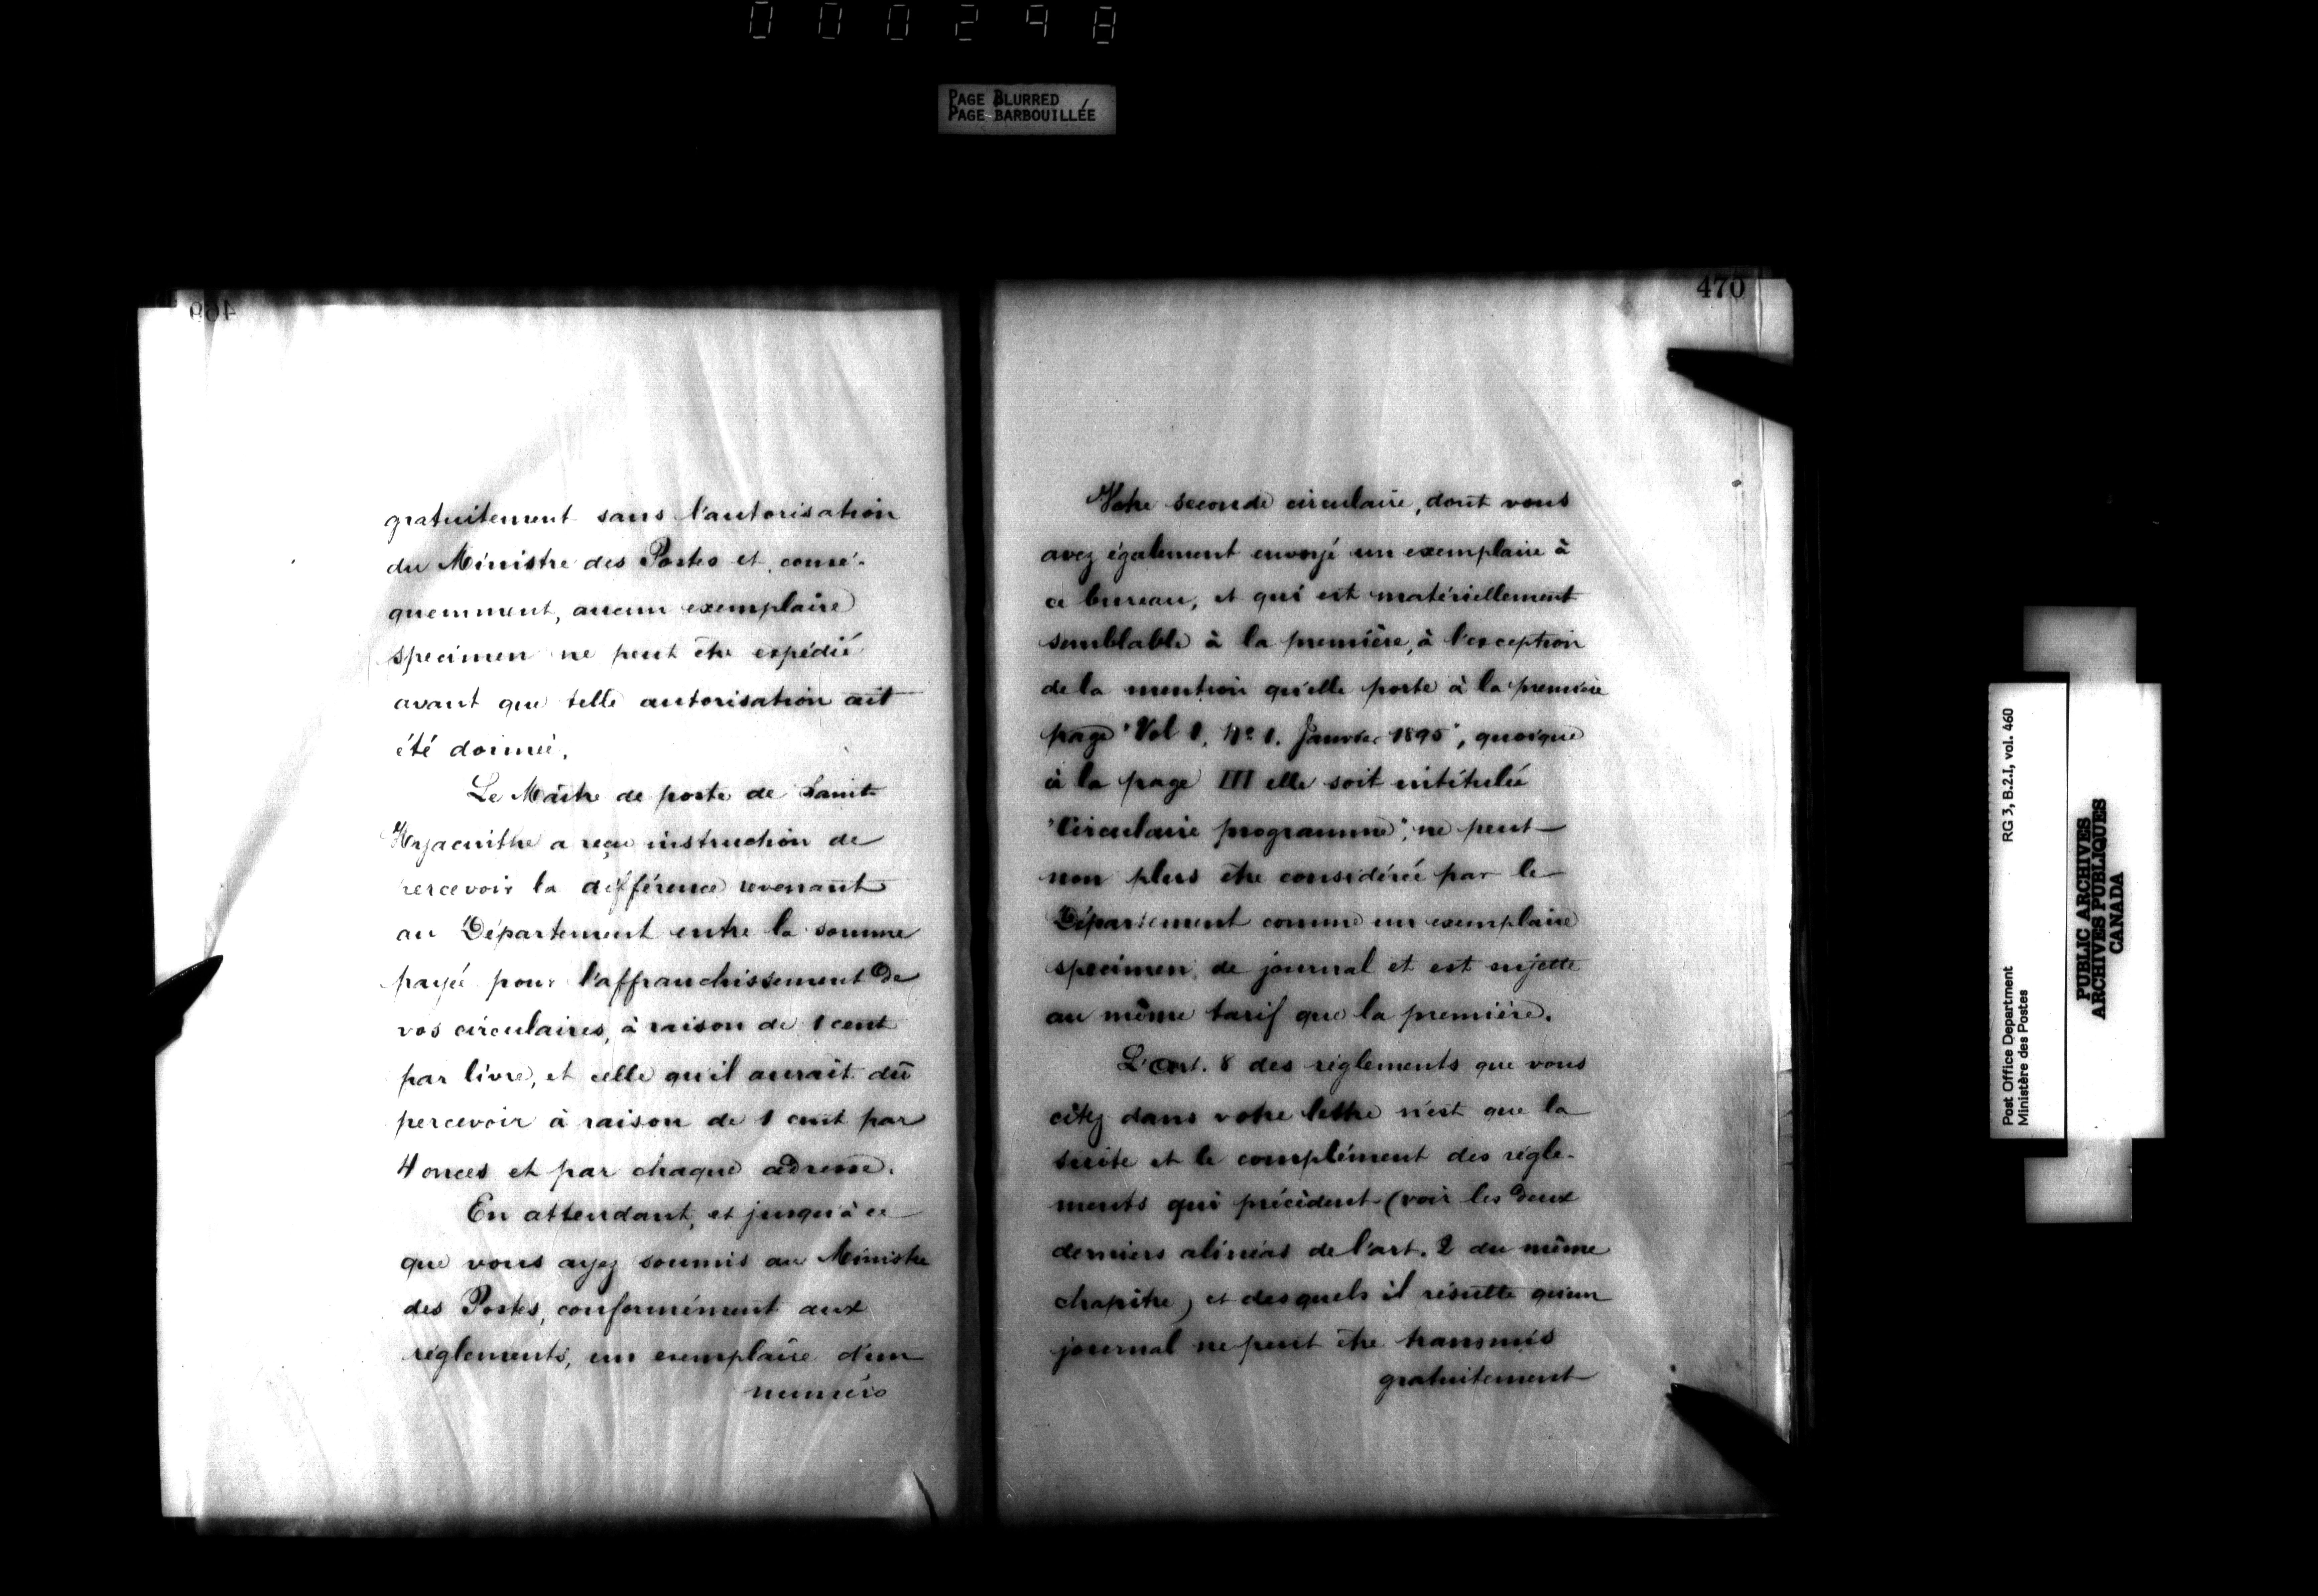 000298
PAGE BLURRED
PAGE BARBOUILLÉE
469
gratuitement sans l'autorisation
du Ministre des Postes et, consé-
quemment, aucun exemplaire
specimen ne peut être expédié
avant que telle autorisation ait
été donnée.
Le Maître de poste de Saint
Hyacinthe a reçu instruction de
percevoir la différence revenant
au Département entre la somme
payée pour l'affranchissement de
vos circulaires, à raison de 1 cent
par livre, et celle qu'il aurait dû
percevoir à raison de 1 cent par
4 onces et par chaque adresse.
En attendant, et jusqu'à ce
que vous ayez soumis au Ministre
des Postes, conformément aux
réglements, un exemplaire d'un
numéro
470
Votre seconde circulaire, dont vous
avez également envoyé un exemplaire à
ce bureau, et qui est matériellement
semblable à la première, à l'exception
de la mention qu'elle porte à la première
page "Vol 1, No 1. Janvier 1895", quoique
à la page III elle soit intitulée
"Circulaire programme", ne peut
non plus être considérée par le
Département comme un exemplaire
specimen de journal et est sujette
au même tarif que la première.
L'Art. 8 des réglements que vous
citez dans votre lettre n'est que la
suite et le complément des régle-
ments qui précèdent (voir les deux
derniers alinéas de l'art. 2 du même
chapitre) et desquels il résulte qu'un
journal ne peut être transmis
gratuitement
Post Office Department RG 3, B.2.I, vol. 460
Ministère des Postes
PUBLIC ARCHIVES
ARCHIVES PUBLIQUES
CANADA